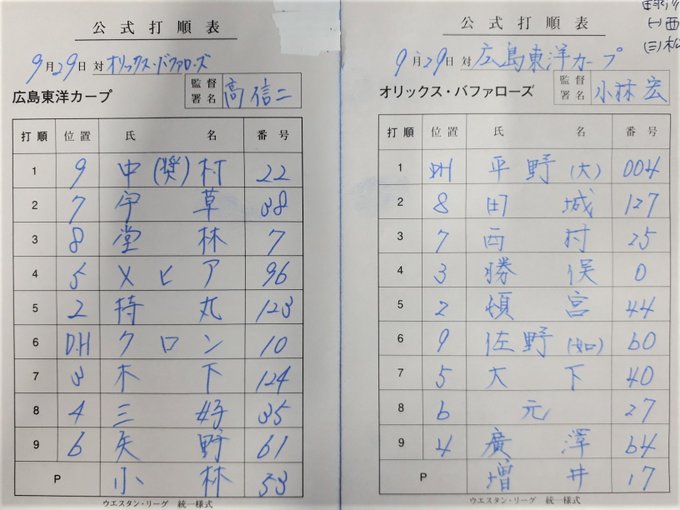 公式打順表
9月29日 対 オリックス・バファローズ
広島東洋カープ 監督署名 高信二
打順 位置 氏名 番号
1 9 中(奨)村 22
2 7 宇草 38
3 8 堂林 7
4 5 メヒア 96
5 2 持丸 123
6 D.H クロン 10
7 3 木下 124
8 4 三好 35
9 6 矢野 61
P 小林 53
ウエスタン・リーグ 統一様式
公式打順表
9月29日 対 広島東洋カープ
オリックス・バファローズ 監督署名 小林宏
打順 位置 氏名 番号
1 DH 平野(大) 004
2 8 田城 127
3 7 西村 25
4 3 勝俣 0
5 2 頓宮 44
6 9 佐野(如) 60
7 5 大下 40
8 6 元 27
9 4 廣澤 64
P 増井 17
ウエスタン・リーグ 統一様式
(一)西
(三)松